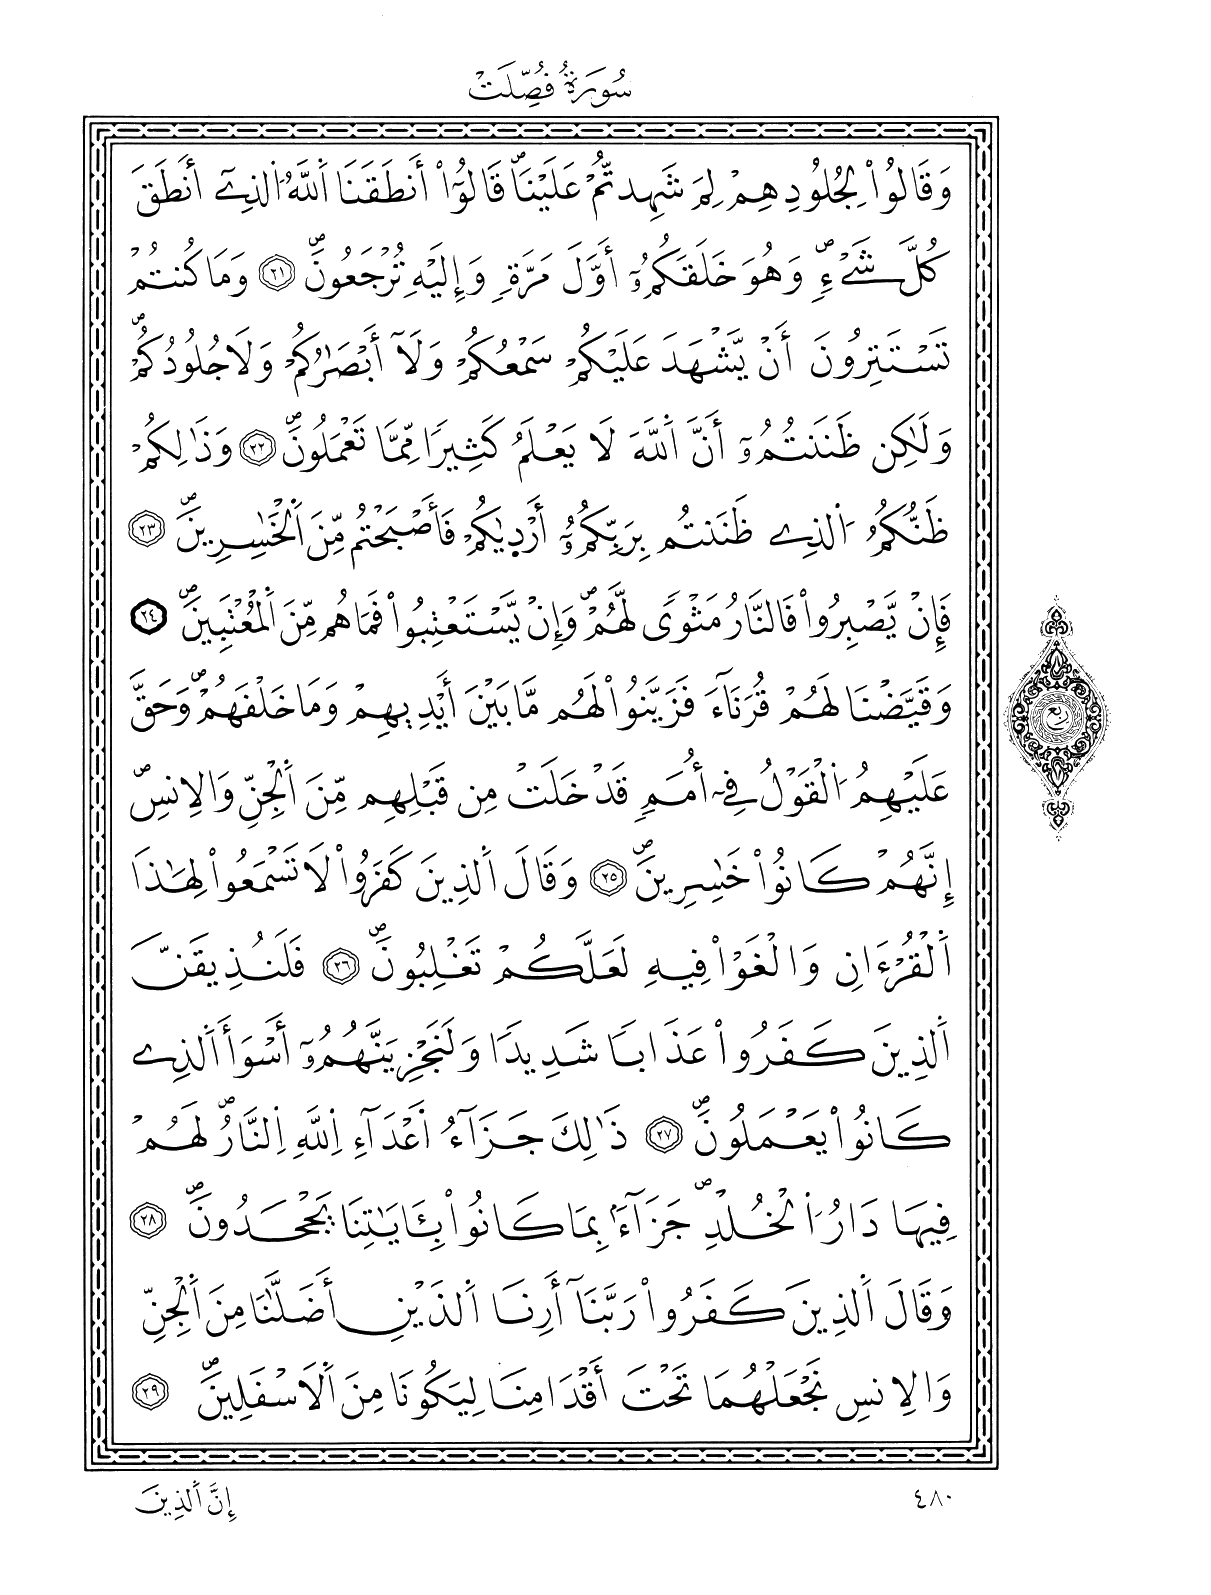 سُورَةُ فُصِّلَتْ
وَقَالُواْ لِجُلُودِهِمْ لِمَ شَهِدتُّمْ عَلَيْنَاۖ قَالُوٓاْ أَنطَقَنَا اَ۬للَّهُ اُ۬لذِےٓ أَنطَقَ
كُلَّ شَےْءٖۖ وَهُوَ خَلَقَكُمُۥٓ أَوَّلَ مَرَّةٖ وَإِلَيْهِ تُرْجَعُونَۖ ٢١ وَمَا كُنتُمْ
تَسْتَتِرُونَ أَنْ يَّشْهَدَ عَلَيْكُمْ سَمْعُكُمْ وَلَآ أَبْصَٰرُكُمْ وَلَا جُلُودُكُمْۖ
وَلَٰكِن ظَنَنتُمُۥٓ أَنَّ اَ۬للَّهَ لَا يَعْلَمُ كَثِيراٗ مِّمَّا تَعْمَلُونَۖ ٢٢ وَذَٰلِكُمْ
ظَنُّكُمُ اُ۬لذِے ظَنَنتُم بِرَبِّكُمُۥٓ أَرْد۪يٰكُمْ فَأَصْبَحْتُم مِّنَ اَ۬لْخَٰسِرِينَۖ ٢٣
فَإِنْ يَّصْبِرُواْ فَالنَّارُ مَثْوىٗ لَّهُمْۖ وَإِنْ يَّسْتَعْتِبُواْ فَمَا هُم مِّنَ اَ۬لْمُعْتَبِينَۖ ٢٤
وَقَيَّضْنَا لَهُمْ قُرَنَآءَ فَزَيَّنُواْ لَهُم مَّا بَيْنَ أَيْدِيهِمْ وَمَا خَلْفَهُمْۖ وَحَقَّ
عَلَيْهِمُ اُ۬لْقَوْلُ فِےٓ أُمَمٖ قَدْ خَلَتْ مِن قَبْلِهِم مِّنَ اَ۬لْجِنِّ وَالِانسِۖ
إِنَّهُمْ كَانُواْ خَٰسِرِينَۖ ٢٥ وَقَالَ اَ۬لذِينَ كَفَرُواْ لَا تَسْمَعُواْ لِهَٰذَا
اَ۬لْقُرْءَانِ وَالْغَوْاْ فِيهِ لَعَلَّكُمْ تَغْلِبُونَۖ ٢٦ فَلَنُذِيقَنَّ
اَ۬لذِينَ كَفَرُواْ عَذَاباٗ شَدِيداٗ وَلَنَجْزِيَنَّهُمُۥٓ أَسْوَأَ اَ۬لذِے
كَانُواْ يَعْمَلُونَۖ ٢٧ ذَٰلِكَ جَزَآءُ أَعْدَآءِ اِ۬للَّهِ اِ۬لنَّارُۖ لَهُمْ
فِيهَا دَارُ اُ۬لْخُلْدِۖ جَزَآءَۢ بِمَا كَانُواْ بِـَٔايَٰتِنَا يَجْحَدُونَۖ ٢٨
وَقَالَ اَ۬لذِينَ كَفَرُواْ رَبَّنَآ أَرِنَا اَ۬لذَيْنِ أَضَلَّٰنَا مِنَ اَ۬لْجِنِّ
وَالِانسِ نَجْعَلْهُمَا تَحْتَ أَقْدَامِنَا لِيَكُونَا مِنَ اَ۬لَاسْفَلِينَۖ ٢٩
ربع
٤٨٠
إِنَّ اَ۬لذِينَ